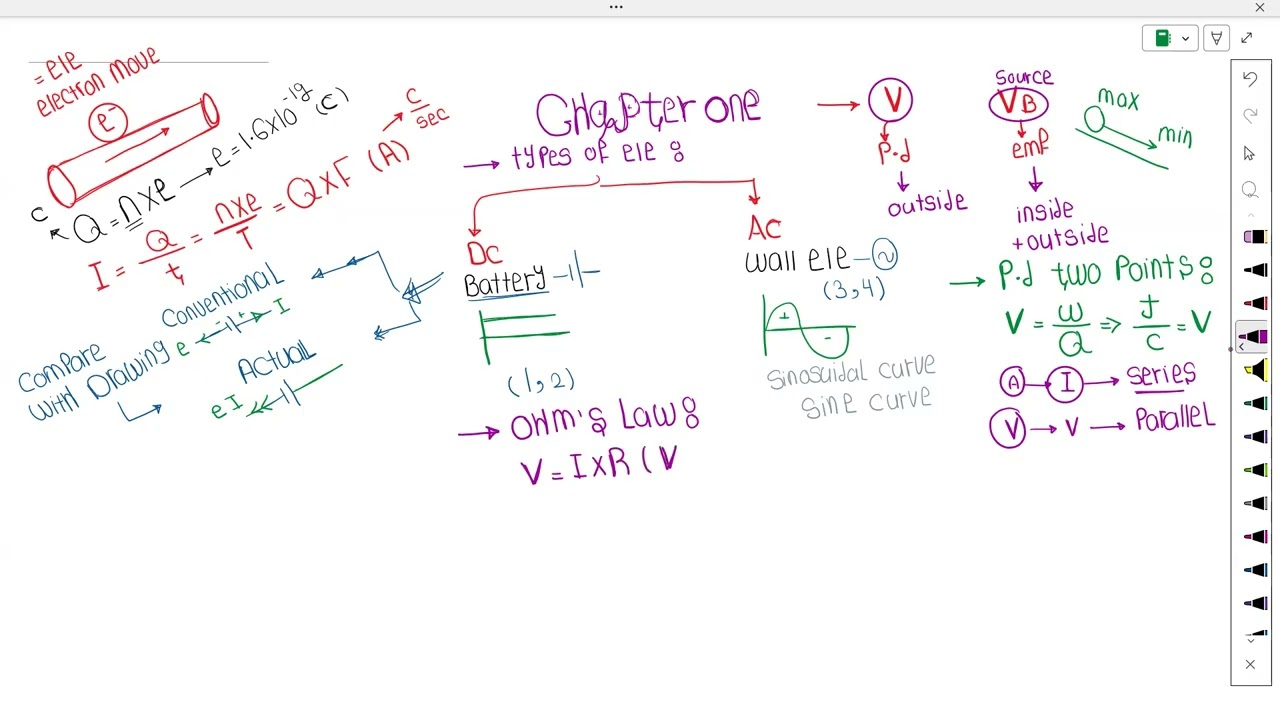 = ele
electron move
e⁻
C
Q = n x e → e = 1.6x10⁻¹⁹ (C)
I = Q/t = nxe/T = QxF (A) → C/sec
Conventional
e I
Compare
with Drawing
Actual
e I
Chapter one
→ types of ele :
Dc
Battery
(1,2)
Ac
wall ele
(3,4)
+
-
Sinosuidal curve
Sine curve
→ Ohm's Law :
V = IxR (V
→ V
P.d
outside
Source
VB
emf
inside
+outside
max
min
→ P.d two Points :
V = W/Q => J/C = V
A → I → series
V → V → Parallel